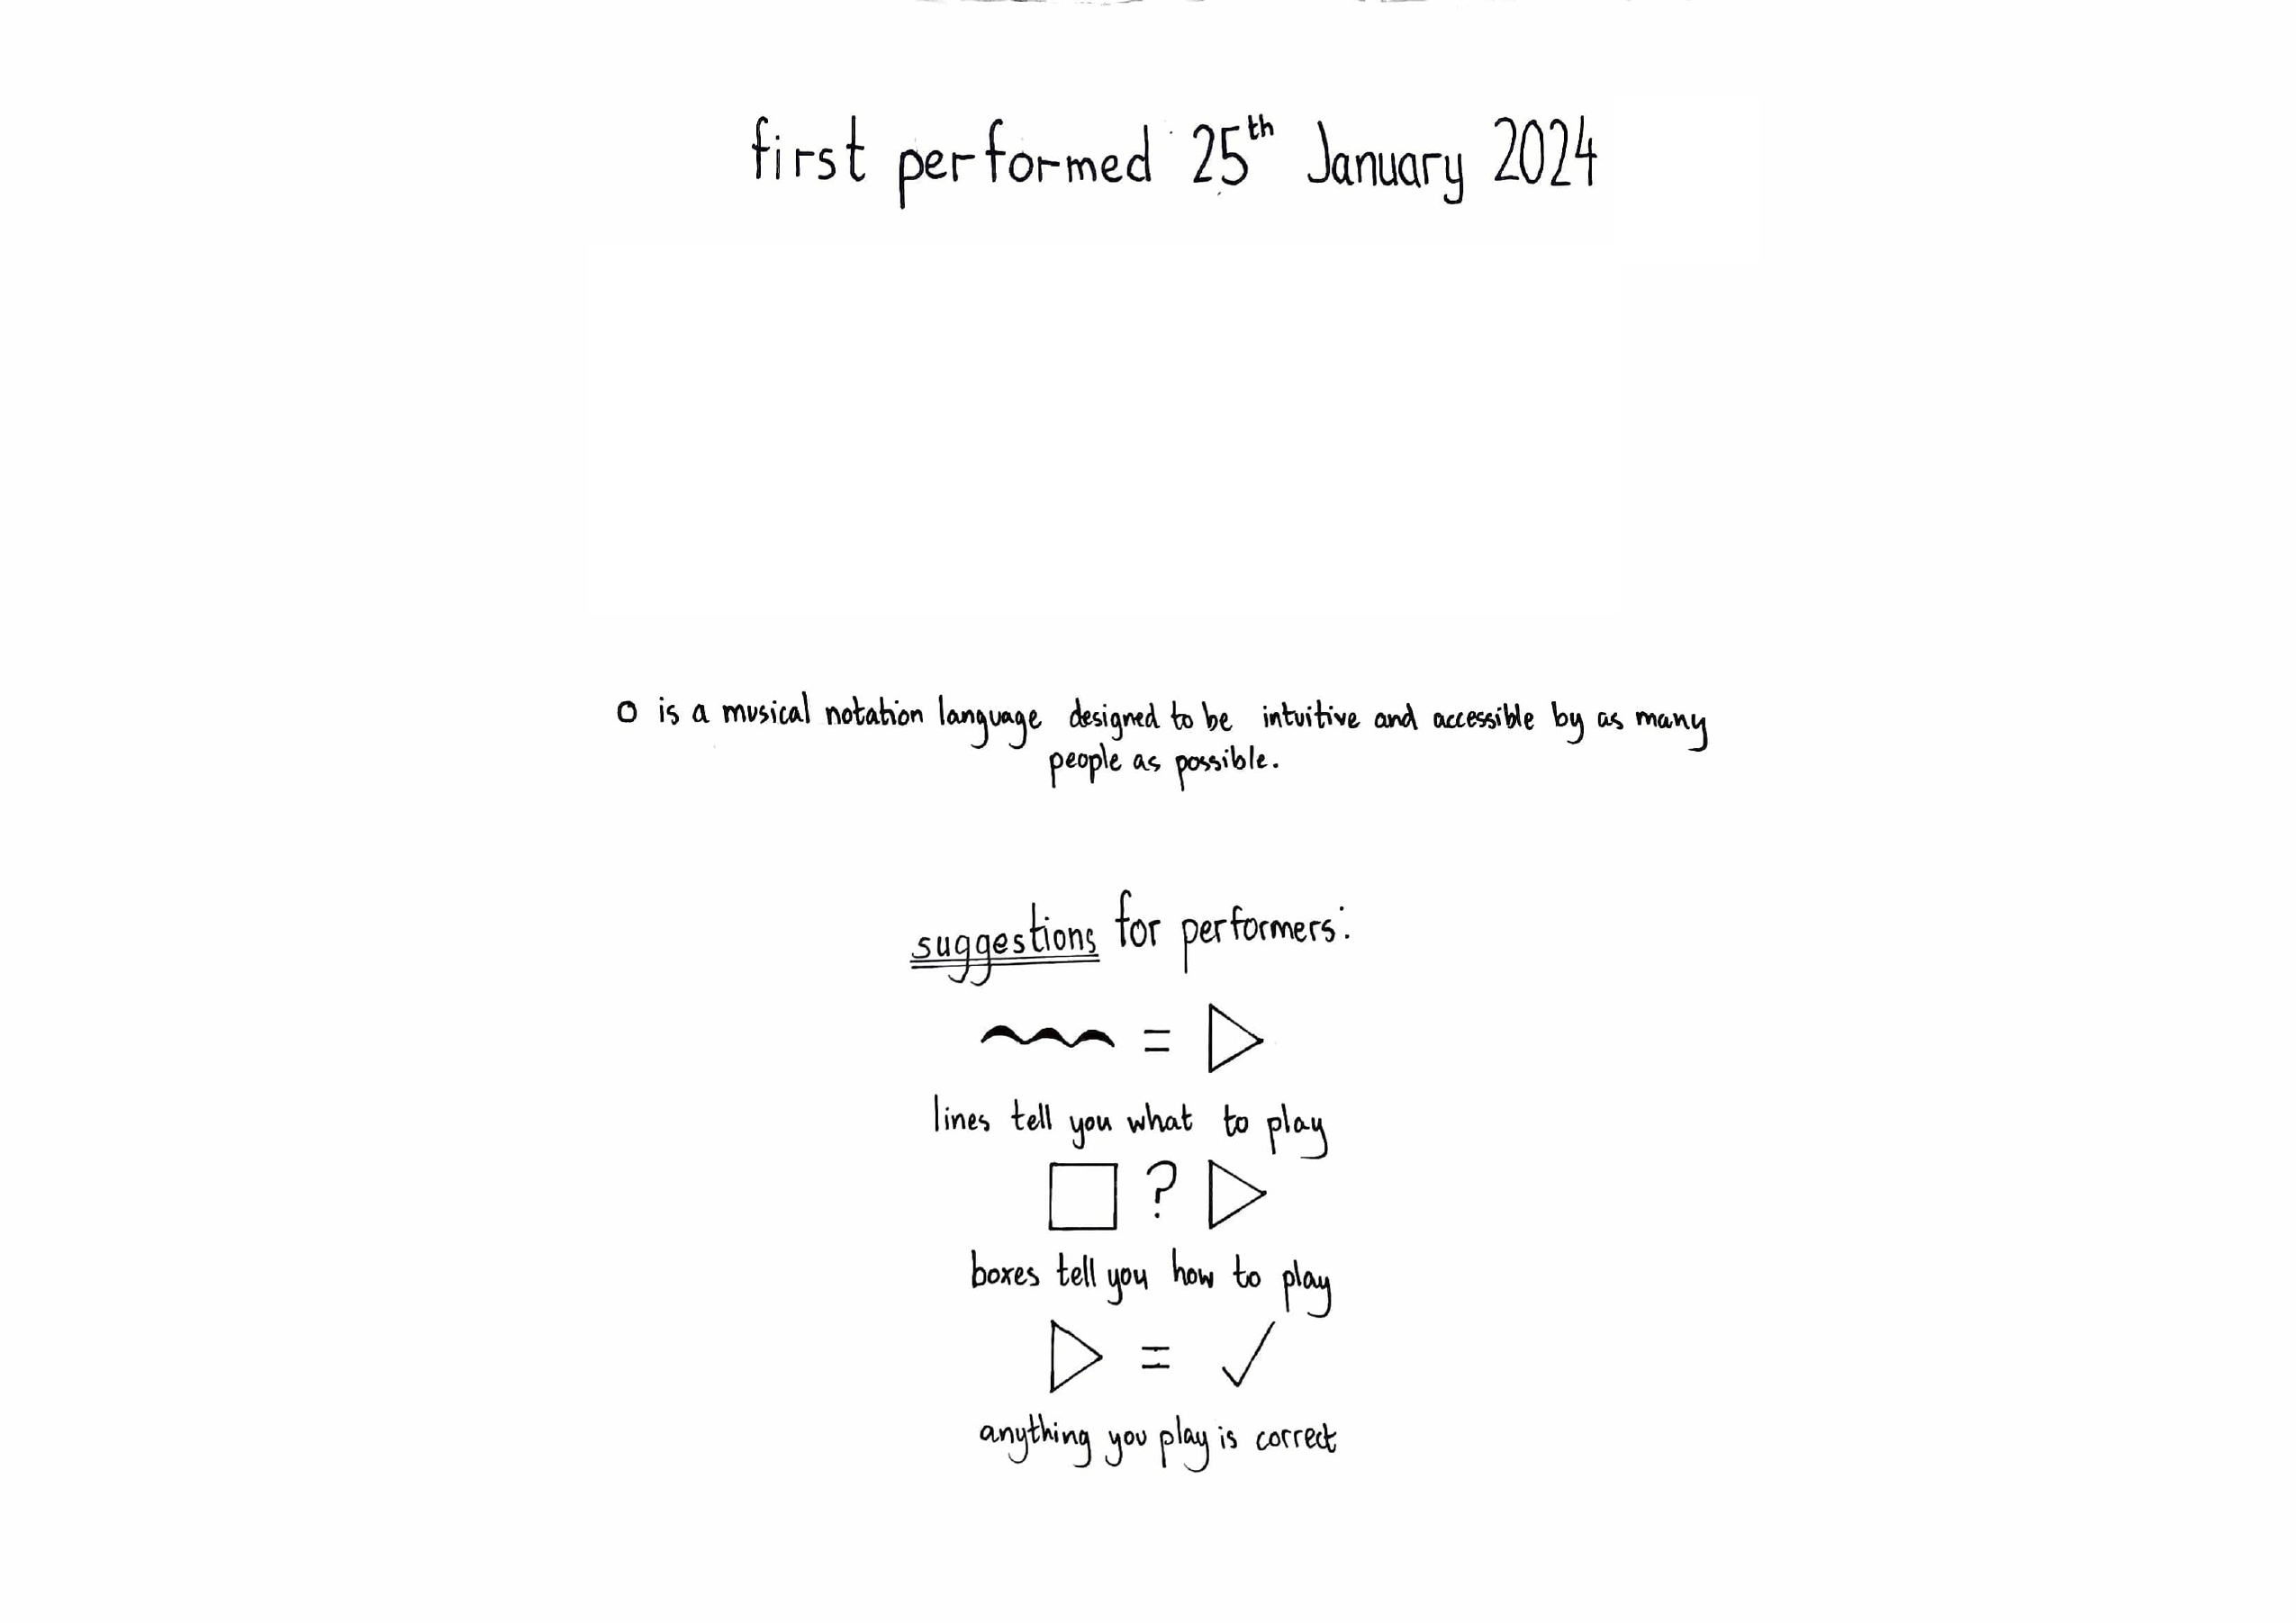 first performed 25th January 2024
o is a musical notation language designed to be intuitive and accessible by as many
people as possible.
suggestions for performers:
=
lines tell you what to play
?
boxes tell you how to play
= ✓
anything you play is correct